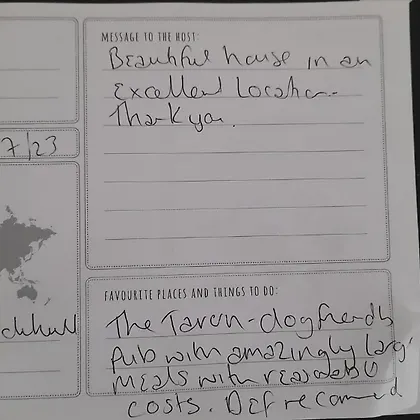 MESSAGE TO THE HOST:
Beautiful house in an
Excellent Location.
Thank you.
7/23
FAVOURITE PLACES AND THINGS TO DO:
The Tavern - dog friendly
Pub with amazingly large
meals with reasonable
costs. Def recommend